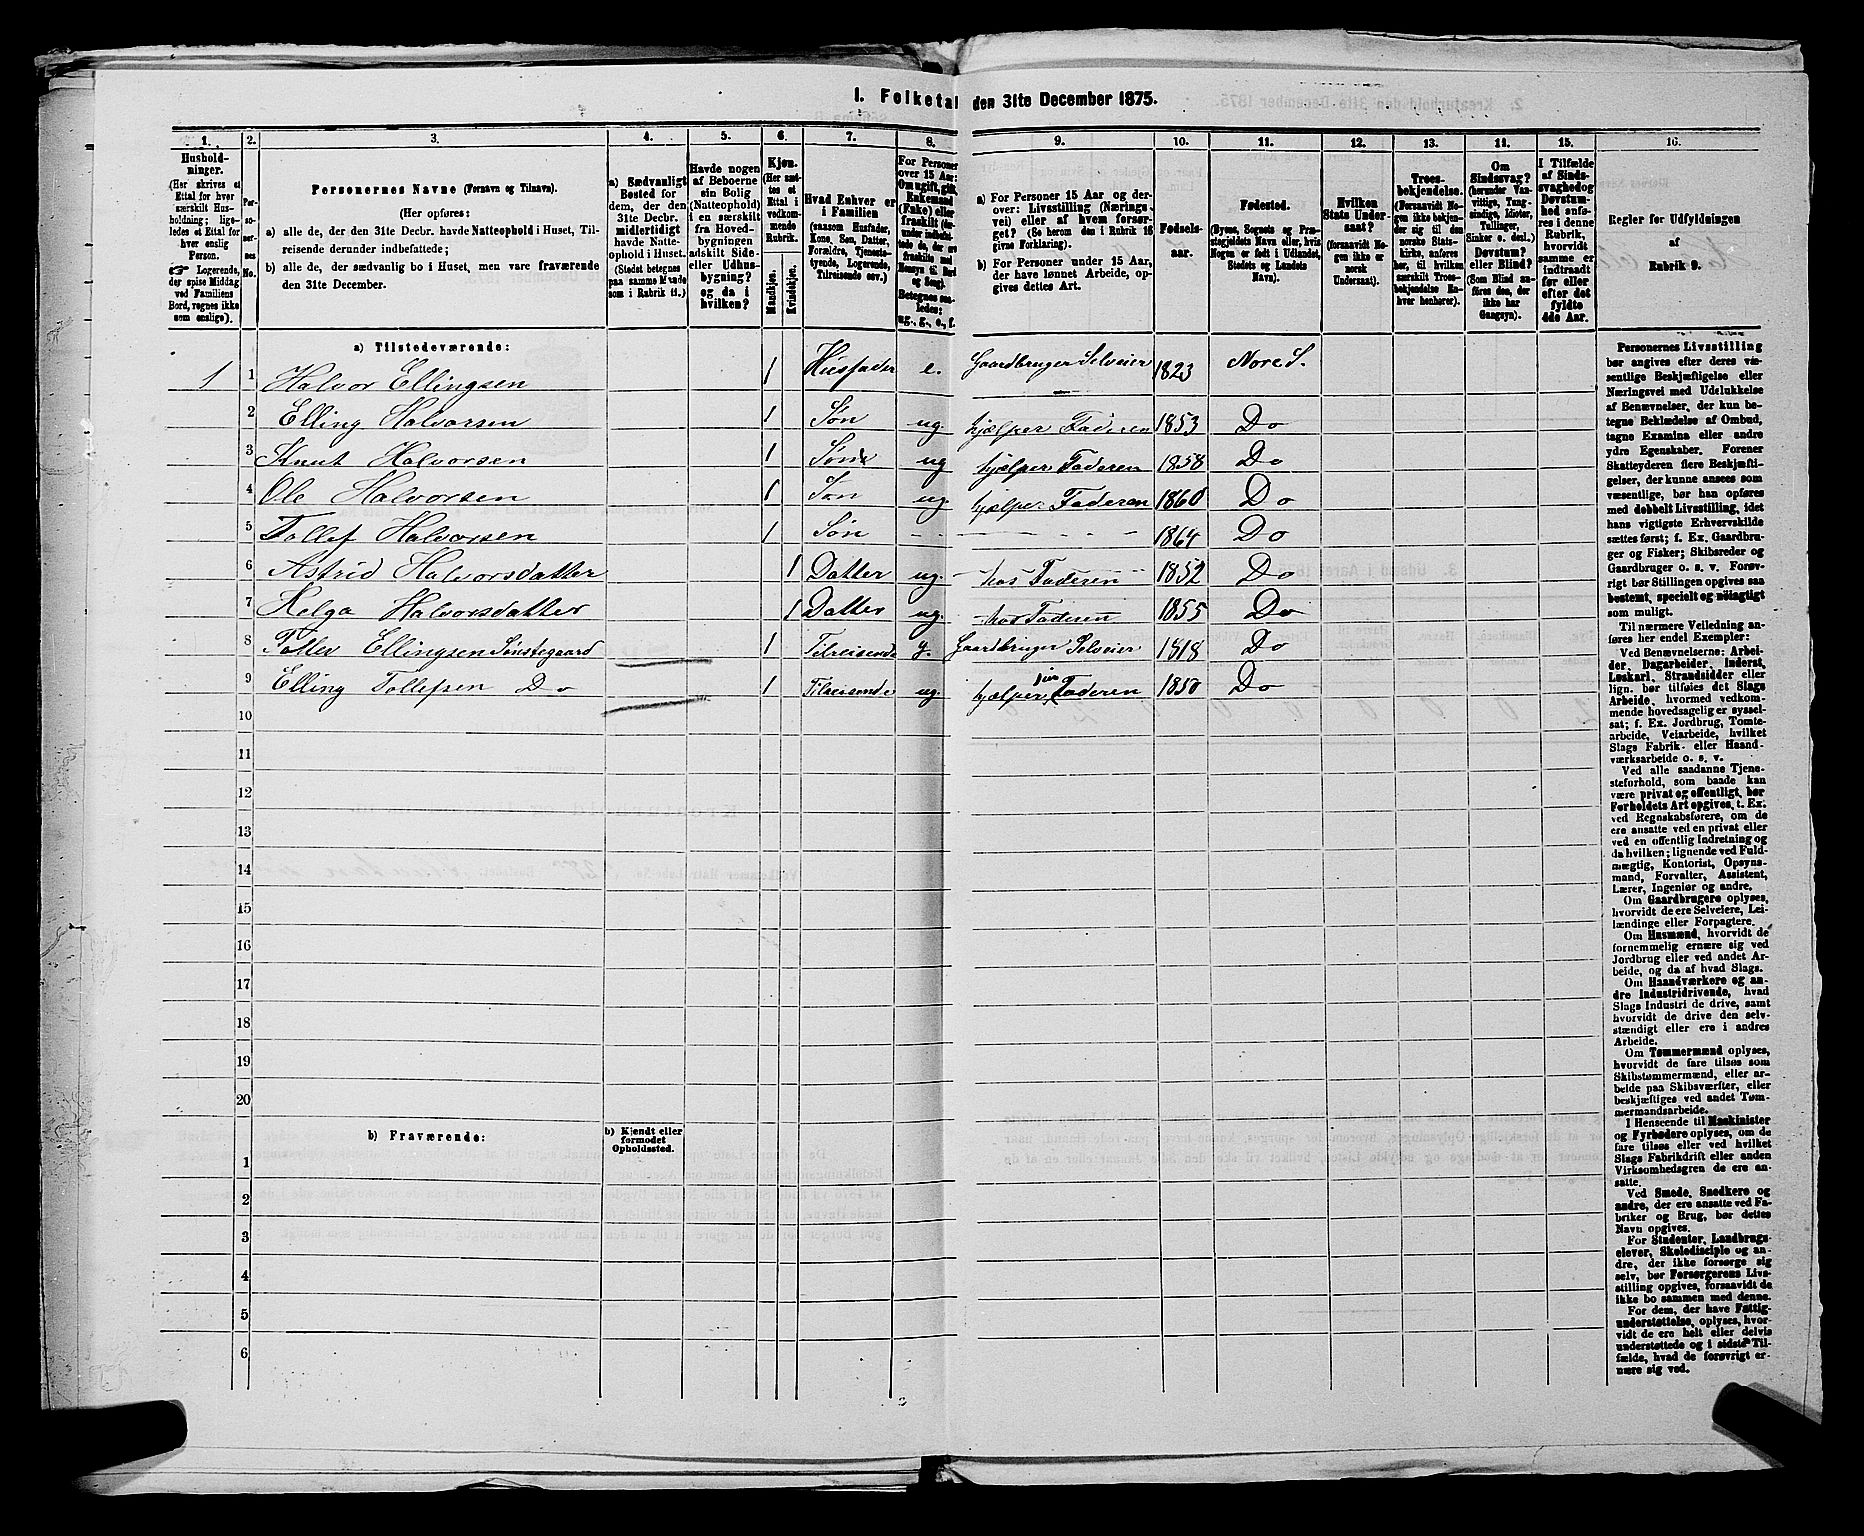 I. Folketal den 31te December 1875.
1. 2. 3. 4. 5. 6. 7. 8. 9. 10. 11. 12. 13. 14. 15. 16.
Husholdninger.
(Her skrives et
Ettal for hver
særskilt Husholdning;
ligeledes et Ettal for
hver enslig
Person.
Logerende,
der spise Middag
ved Familiens
Bord, regnes ikke
som enslige).
Personernes No.
Personernes Navne (Fornavn og Tilnavn).
(Her opføres:
a) alle de, der den 31te Decbr. havde Natteophold i Huset, Tilreisende
derunder indbefattede;
b) alle de, der sædvanlig bo i Huset, men vare fraværende
den 31te December.
a) Sædvanligt
Bosted for
dem, der den
31te Decbr.
midlertidigt
havde Natteophold
i Huset.
(Stedet betegnes
paa samme Maade
som i Rubrik 11.)
Havde nogen
af Beboerne
sin Bolig
(Natteophold)
i en særskilt
fra Hovedbygningen
adskilt Side- eller Udhusbygning?
og da i
hvilken?
Kjøn.
(Her sættes
et
Ettal i
vedkommende
Rubrik.
Mandkjøn.
Kvindekjøn.
Hvad Enhver er
i Familien
(saasom Husfader,
Kone, Søn, Datter,
Forældre, Tjenestetyende,
Logerende,
Tilreisende osv.)
For Personer
over 15 Aar:
Om ugift, gift,
Enkemand
(Enke) eller
fraskilt
Betegnes saaledes:
ug., g., e., f.
a) For Personer 15 Aar og derover:
Livsstilling (Næringsvei)
eller af hvem forsørget?
(Se herom den i Rubrik 16
givne Forklaring).
b) For Personer under 15 Aar,
der have lønnet Arbeide, opgives
dettes Art.
Fødselsaar.
Fødested.
(Byens, Sognets og Præstegjeldets
Navn eller, hvis
Nogen er født i Udlandet,
Stedets og Landets
Navn).
Hvilken
Stats Undersaat?
(forsaavidt Nogen
ikke er
norsk
Undersaat).
Troesbekjendelse.
(Forsaavidt Nogen
ikke bekjender
sig til den
norske Statskirke,
anføres
her, til hvilken
særskilt Troesbekjendelse
Enhver
henhører).
Om
Sindssvag?
(herunder Vanvittige,
Tungsindige,
Idioter,
Tullinger,
Sinker o. desl.)
Døvstum?
eller Blind?
(Som Blind anføres
den, der
ikke har
Gangsyn).
I Tilfælde
af Sindssvaghed
og
Døvstumhed
anføres
i denne
Rubrik,
hvorvidt
samme er
indtraadt
før eller
efter det
fyldte
4de Aar.
Regler for Udfyldningen
af
Rubrik 9.
a) Tilstedeværende:
1 1 Halvor Ellingsen 1 Husfader e. Gaardbruger Selveier 1823 Nore S.
2 Elling Halvorsen 1 Søn ug. hjælper Faderen 1853 Do
3 Knut Halvorsen 1 Søn ug hjælper Faderen 1858 Do
4 Ole Halvorsen 1 Søn ug. hjælper Faderen 1860 Do
5 Tollef Halvorsen 1 Søn - - - - - - 1864 Do
6 Astrid Halvorsdatter 1 Datter ug. hos Faderen 1852 Do
7 Helga Halvorsdatter 1 Datter ug. hos Faderen 1855 Do
8 Tollev Ellingsen Sønstegaard 1 Tilreisende g. Gaardbruger Selveier 1818 Do
9 Elling Tollefsen Do 1 Tilreisende ug. hjælper sin Faderen 1850 Do
10
11
12
13
14
15
16
17
18
19
20
b) Fraværende:
b) Kjendt eller
formodet
Opholdssted.
1
2
3
4
5
6
Personernes Livsstilling
bør angives efter deres væsentlige
Beskjæftigelse eller
Næringsvei med Udelukkelse
af Benævnelser, der kun betegne
Beklædelse af Ombud,
tagne Examina eller andre
ydre Egenskaber. Forener
Skatteyderen flere Beskjæftigelser,
der kunne ansees som
væsentlige, bør han opføres
med dobbelt Livsstilling, idet
hans vigtigste Erhvervskilde
sættes først; f. Ex. Gaardbruger
og Fisker; Skibsreder og
Gaardbruger o. s. v. Forøvrigt
bør Stillingen opgives saa
bestemt, specielt og nøiagtigt
som muligt.
Til nærmere Veiledning anføres
her endel Exempler:
Ved Benævnelserne: Arbeider,
Dagarbeider, Inderst,
Løskarl, Strandsidder eller
lign. bør tilføies det Slags
Arbeide, hvormed vedkommende
hovedsagelig er sysselsat;
f. Ex. Jordbrug, Tomtearbeide,
Veiarbeide, hvilket
Slags Fabrik- eller Haandværksarbeide
o. s. v.
Ved alle saadanne Tjenesteforhold,
som baade kan
være privat og offentligt, bør
Forholdets Art opgives, t. Ex.
ved Regnskabsførere, om de
ere ansatte ved en privat eller
ved en offentlig Indretning og
da hvilken; lignende ved Fuldmægtig,
Kontorist, Opsynsmand,
Forvalter, Assistent,
Lærer, Ingeniør og andre.
Om Gaardbrugere oplyses,
hvorvidt de ere Selveiere, Leilændinge
eller Forpagtere.
Om Husmænd, hvorvidt de
fornemmelig ernære sig ved
Jordbrug eller ved andet Arbeide,
og da af hvad Slags.
Om Haandværkere og andre
Industridrivende, hvad
Slags Industri de drive, samt
hvorvidt de drive den selvstændigt
eller ere i andres
Arbeide.
Om Tømmermænd oplyses,
hvorvidt de fare tilsøs som
Skibstømmermænd, eller arbeide
paa Skibsværfter, eller
beskjæftiges ved andet Tømmermandsarbeide.
I Henseende til Maskinister
og Fyrbødere oplyses, om de
fare tilsøs eller ved hvilket
Slags Fabrikdrift eller anden
Virksomhedsgren de ere ansatte.
Ved Smede, Snedkere og
andre, der ere ansatte ved Fabriker
og Brug, bør dettes
Navn opgives.
For Studenter, Landbrugselever,
Skoledisciple og andre,
der ikke forsørge sig
selv, bør Forsørgerens Livsstilling
opgives, forsaavidt de
ikke bo sammen med denne.
For dem, der have Fattigunderstøttelse,
oplyses, hvorvidt
de ere helt eller delvis
understøttede og i sidste Tilfælde,
hvad de forøvrigt ernære
sig ved.